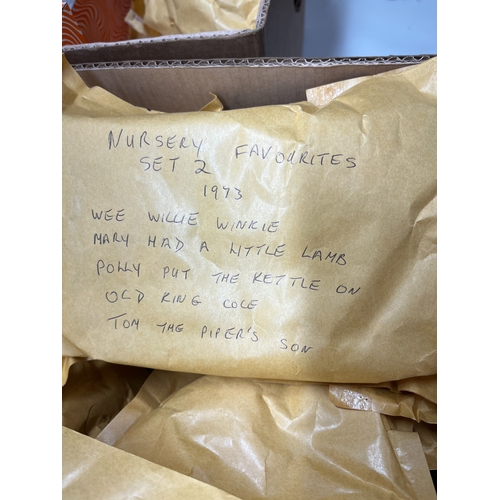 NURSERY FAVOURITES
SET 2
1973
WEE WILLIE WINKIE
MARY HAD A LITTLE LAMB
POLLY PUT THE KETTLE ON
OLD KING COLE
TOM THE PIPER'S SON